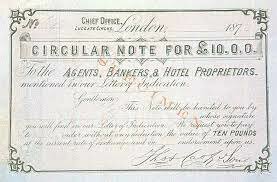 No
CHIEF OFFICE,
LUDGATE CIRCUS,
London, 187
CIRCULAR NOTE FOR £10.0.0.
To the AGENTS, BANKERS, & HOTEL PROPRIETORS.
mentioned in our Letter of Indication.
Gentlemen,
This Note shall be handed to you by
whose signature
you will find in our Letter of Indication. We request you to pay
to order without any deduction the value of TEN POUNDS
at the current rate of exchange and on endorsement upon us.
Thos Cook & Son